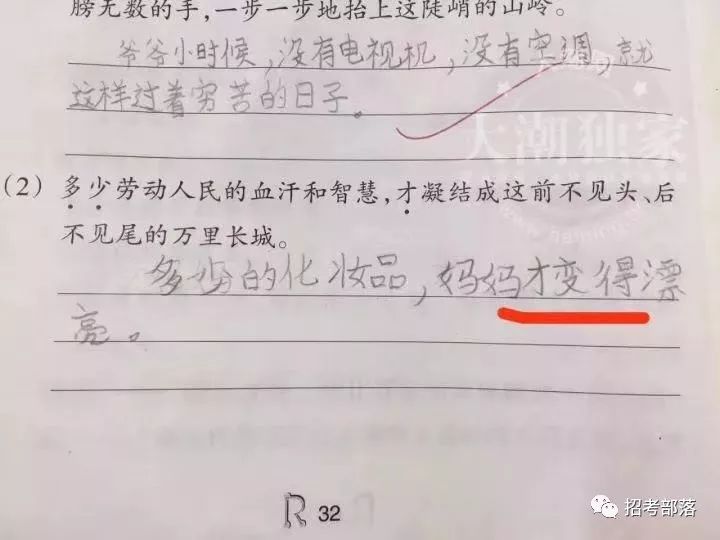 膀无数的手,一步一步地抬上这陡峭的山岭。
爷爷小时候,没有电视机,没有空调,就
这样过着穷苦的日子。
大潮独家
(2) 多少劳动人民的血汗和智慧,才凝结成这前不见头、后
不见尾的万里长城。
多少的化妆品,妈妈才变得漂
亮。
R 32
招考部落